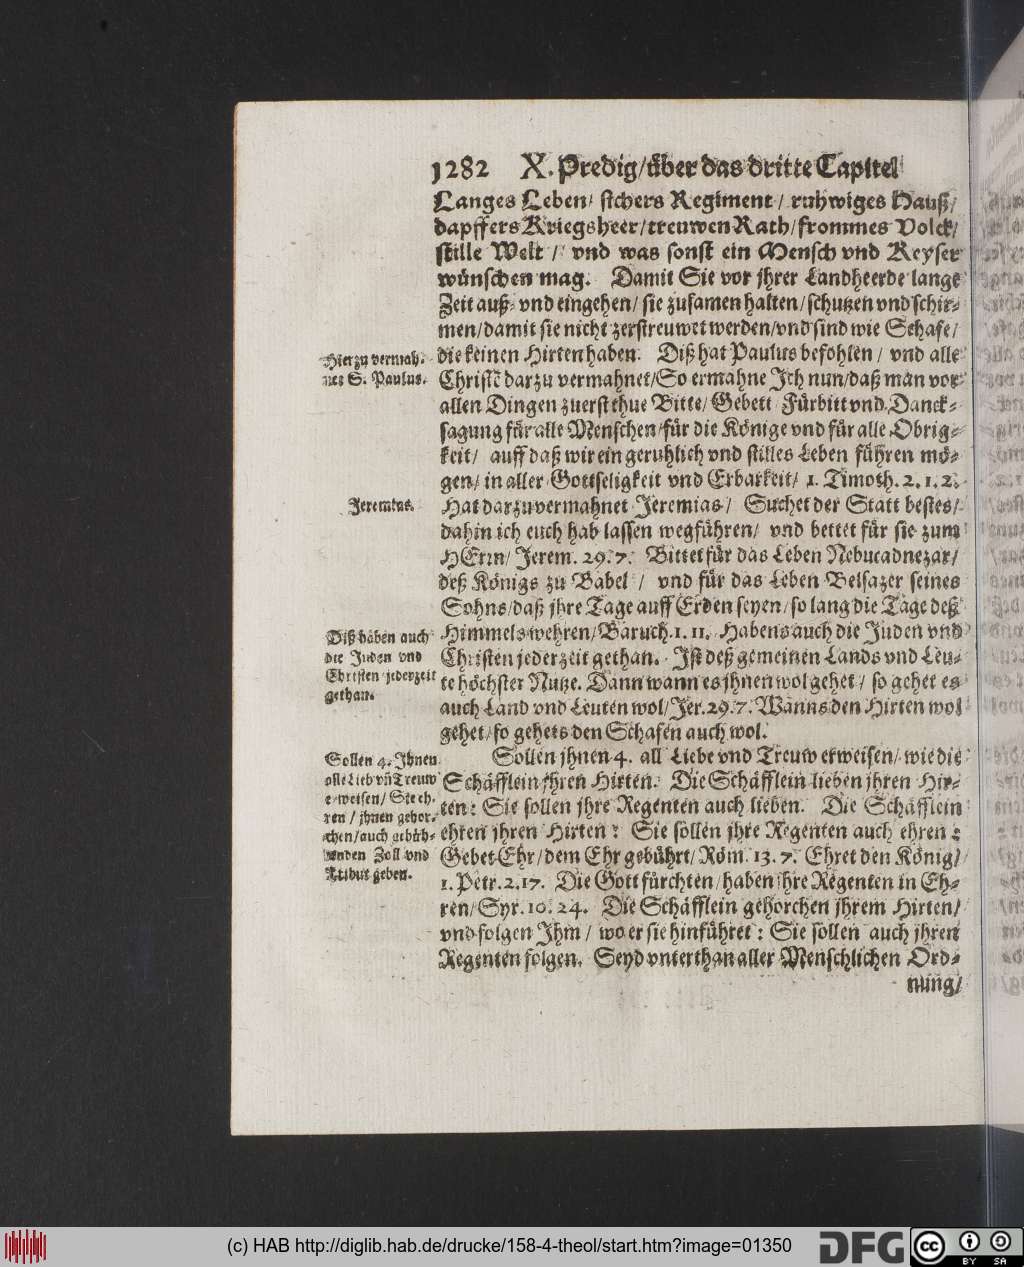 1282 X. Predig/über das dritte Capitel
Langes Leben/ sichers Regiment/ ruhwiges Hauß/
dapffers Kriegsheer/treuwen Rath/frommes Volck/
stille Welt/ vnd was sonst ein Mensch vnd Keyser
wünschen mag. Damit Sie vor jhrer Landheerde lange
Zeit auß- vnd eingehen/ sie zusamen halten/schutzen vnd schir-
men/damit sie nicht zerstreuwet werden/vnd sind wie Schafe/
die keinen Hirten haben. Diß hat Paulus befohlen/ vnd alle
Christē darzu vermahnet/So ermahne Ich nun/daß man vor
allen Dingen zuerst thue Bitte/ Gebett Fürbitt vnd Danck-
sagung für alle Menschen/für die Könige vnd für alle Obrig-
keit/ auff daß wir ein geruhlich vnd stilles Leben führen mö-
gen/ in aller Gottseligkeit vnd Erbarkeit/ 1. Timoth. 2. 1. 2.
Hat darzu vermahnet Jeremias/ Suchet der Statt bestes/
dahin ich euch hab lassen wegführen/ vnd bettet für sie zum
HErrn/ Jerem. 29. 7. Bittet für das Leben Nebucadnezar/
deß Königs zu Babel/ vnd für das Leben Belsazer seines
Sohns/daß jhre Tage auff Erden seyen/ so lang die Tage deß
Himmels wehren/Baruch. 1. 11. Habens auch die Juden vnd
Christen jederzeit gethan. Ist deß gemeinen Lands vnd Leu-
te höchster Nutze. Dann wann es jhnen wol gehet/ so gehet es
auch Land vnd Leuten wol/Jer. 29. 7. Wanns den Hirten wol
gehet/so gehets den Schafen auch wol.
Sollen jhnen 4. all Liebe vnd Treuw erweisen/ wie die
Schäfflein jhren Hirten. Die Schäfflein lieben jhren Hir-
ten: Sie sollen jhre Regenten auch lieben. Die Schäfflein
ehren jhren Hirten: Sie sollen jhre Regenten auch ehren:
Gebet Ehr/dem Ehr gebührt/Röm. 13. 7. Ehret den König/
1. Petr. 2. 17. Die Gott fürchten/haben jhre Regenten in Eh-
ren/Syr. 10. 24. Die Schäfflein gehorchen jhrem Hirten/
vnd folgen Ihm/ wo er sie hinführet: Sie sollen auch jhren
Regenten folgen. Seyd vnterthan aller Menschlichen Ord-
nung/
Hierzu vermah-
net S. Paulus.
Jeremias.
Diß haben auch
die Juden vnd
Christen jederzeit
gethan.
Sollen 4. Ihnen
alle Lieb vñ Treuw
erweisen/ Sie eh-
ren/ jhnen gehor-
chen/auch gebüh-
renden Zoll vnd
Tribut geben.
(c) HAB http://diglib.hab.de/drucke/158-4-theol/start.htm?image=01350
DFG
cc
BY SA